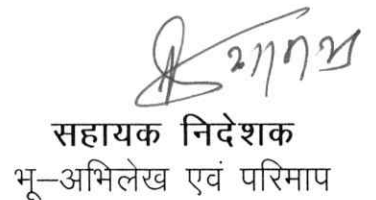 सहायक निदेशक
भू-अभिलेख एवं परिमाप